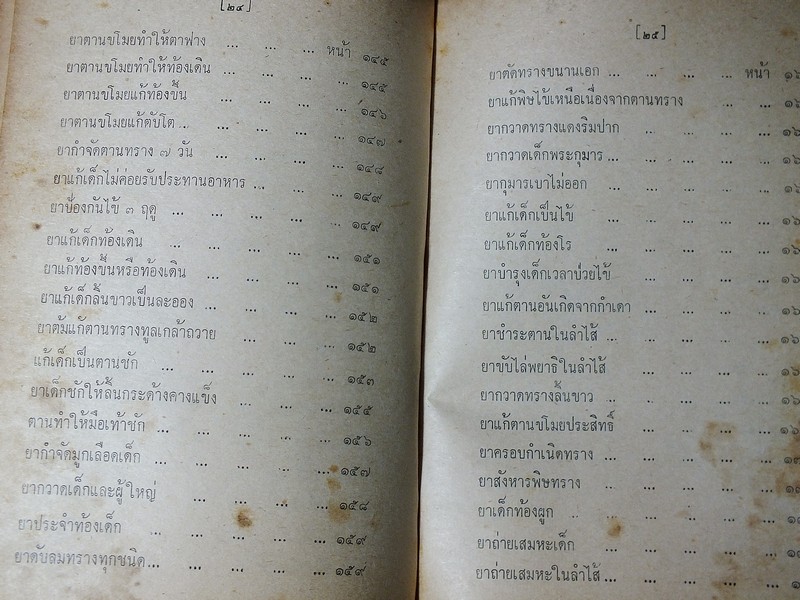 [๒๔]
ยาตานขโมยทำให้ตาฟาง ... ... ... หน้า ๑๔๕
ยาตานขโมยทำให้ท้องเดิน ... ... ... ๑๔๕
ยาตานขโมยแก้ท้องขึ้น ... ... ... ๑๔๖
ยาตานขโมยแก้ตับโต ... ... ... ... ๑๔๗
ยากำจัดตานทราง ๗ วัน ... ... ... ๑๔๘
ยาแก้เด็กไม่ค่อยรับประทานอาหาร ... ... ... ๑๔๙
ยาป้องกันไข้ ๓ ฤดู ... ... ... ... ๑๔๙
ยาแก้เด็กท้องเดิน ... ... ... ... ๑๕๑
ยาแก้ท้องขึ้นหรือท้องเดิน ... ... ... ๑๕๑
ยาแก้เด็กลิ้นขาวเป็นละออง ... ... ... ... ๑๕๒
ยาต้มแก้ตานทรางทูลเกล้าถวาย ... ... ... ๑๕๒
แก้เด็กเป็นตานชัก ... ... ... ... ... ๑๕๓
ยาเด็กชักให้ลิ้นกระด้างคางแข็ง ... ... ... ๑๕๕
ตานทำให้มือเท้าชัก ... ... ... ... ... ๑๕๖
ยากำจัดมูกเลือดเด็ก ... ... ... ... ... ๑๕๗
ยากวาดเด็กและผู้ใหญ่ ... ... ... ... ๑๕๘
ยาประจำท้องเด็ก ... ... ... ... ... ๑๕๙
ยาดับลมทรางทุกชนิด ... ... ... ... ... ๑๕๙
[๒๕]
ยาตัดทรางขนานเอก ... ... ... ... หน้า
ยาแก้พิษไข้เหนือเนื่องจากตานทราง ... ...
ยากวาดทรางแดงริมปาก ... ... ... ...
ยากวาดเด็กพระกุมาร ... ... ... ... ...
ยากุมารเบาไม่ออก ... ... ... ... ...
ยาแก้เด็กเป็นไข้ ... ... ... ... ...
ยาแก้เด็กท้องโร ... ... ... ... ...
ยาบำรุงเด็กเวลาป่วยไข้ ... ... ... ...
ยาแก้ตานอันเกิดจากกำเดา ... ... ... ...
ยาชำระตานในลำไส้ ... ... ... ... ...
ยาขับไล่พยาธิในลำไส้ ... ... ... ...
ยากวาดทรางลิ้นขาว ... ... ... ...
ยาแก้ตานขโมยประสิทธิ์ ... ... ... ...
ยาครอบกำเนิดทราง ... ... ... ... ...
ยาสังหารพิษทราง ... ... ... ... ...
ยาเด็กท้องผูก ... ... ... ... ...
ยาถ่ายเสมหะเด็ก ... ... ... ... ...
ยาถ่ายเสมหะในลำไส้ ... ... ... ... ...